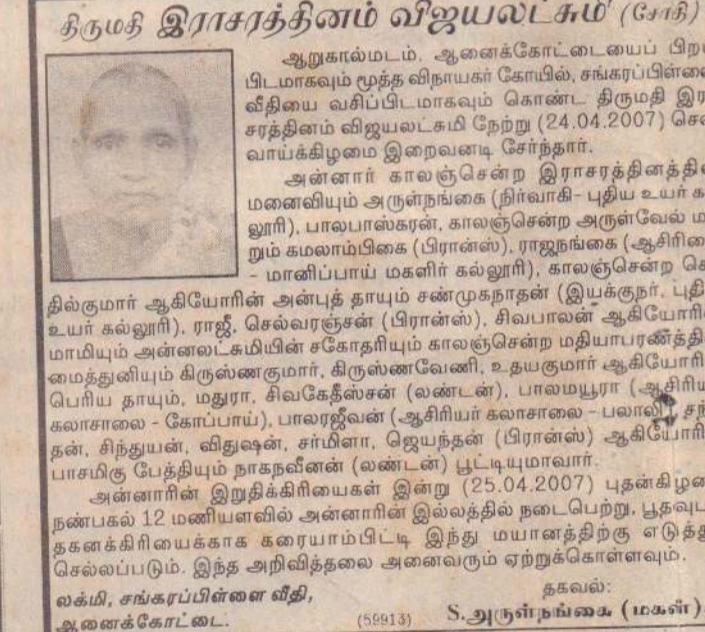 திருமதி இராசரத்தினம் விஜயலட்சுமி (சோதி)
ஆறுகால்மடம், ஆனைக்கோட்டையைப்
பிடமாகவும் மூத்த விநாயகர் கோயில், சங்கரப்பிள்ளை
வீதியை வசிப்பிடமாகவும் கொண்ட திருமதி
சரத்தினம் விஜயலட்சுமி நேற்று (24.04.2007)
வாய்க்கிழமை இறைவனடி சேர்ந்தார்.
அன்னார் காலஞ்சென்ற இராசரத்தினத்தின்
மனைவியும் அருள்நங்கை (நிர்வாகி- புதிய உயர்
லூரி), பாலபாஸ்கரன், காலஞ்சென்ற அருள்வேல்
றும் கமலாம்பிகை (பிரான்ஸ்), ராஜநங்கை (ஆசிரியை
- மானிப்பாய் மகளிர் கல்லூரி), காலஞ்சென்ற
தில்குமார் ஆகியோரின் அன்புத் தாயும் சண்முகநாதன் (இயக்குநர், புதிய
உயர் கல்லூரி), ராஜீ, செல்வரஞ்சன் (பிரான்ஸ்), சிவபாலன் ஆகியோரின்
மாமியும் அன்னலட்சுமியின் சகோதரியும் காலஞ்சென்ற மதியாபரணத்தின்
மைத்துனியும் கிருஸ்ணகுமார், கிருஸ்ணவேணி, உதயகுமார் ஆகியோரின்
பெரிய தாயும், மதுரா, சிவகேதீஸ்சன் (லண்டன்), பாலமயூரா (ஆசிரிய
கலாசாலை - கோப்பாய்), பாலரஜீவன் (ஆசிரியர் கலாசாலை - பலாலி),
தன், சிந்துயன், விதுஷன், சர்மிளா, ஜெயந்தன் (பிரான்ஸ்) ஆகியோரின்
பாசமிகு பேத்தியும் நாகநவீனன் (லண்டன்) பூட்டியுமாவார்.
அன்னாரின் இறுதிக்கிரியைகள் இன்று (25.04.2007) புதன்கிழமை
நண்பகல் 12 மணியளவில் அன்னாரின் இல்லத்தில் நடைபெற்று, பூதவுடல்
தகனக்கிரியைக்காக கரையாம்பிட்டி இந்து மயானத்திற்கு எடுத்துச்
செல்லப்படும். இந்த அறிவித்தலை அனைவரும் ஏற்றுக்கொள்ளவும்.
லக்மி, சங்கரப்பிள்ளை வீதி,
ஆனைக்கோட்டை.
(59913)
தகவல்:
S.அருள்நங்கை (மகள்)